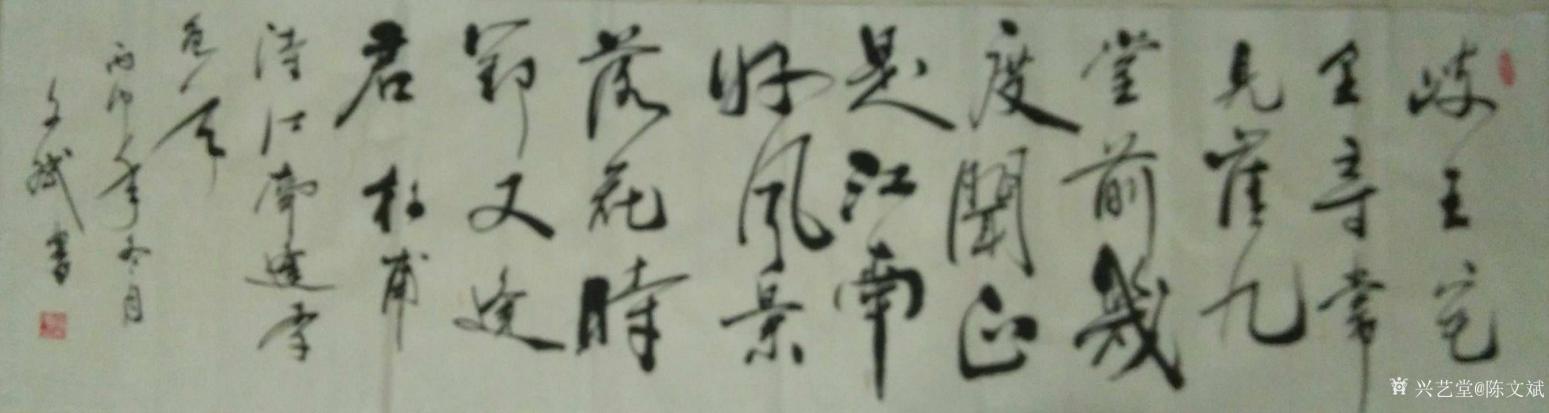 岐王宅
里尋常
見崔九
堂前幾
度聞正
是江南
好風景
落花時
節又逢
君杜甫
詩江南逢李
龟年
丙申年冬月
文斌書
兴艺堂@陈文斌